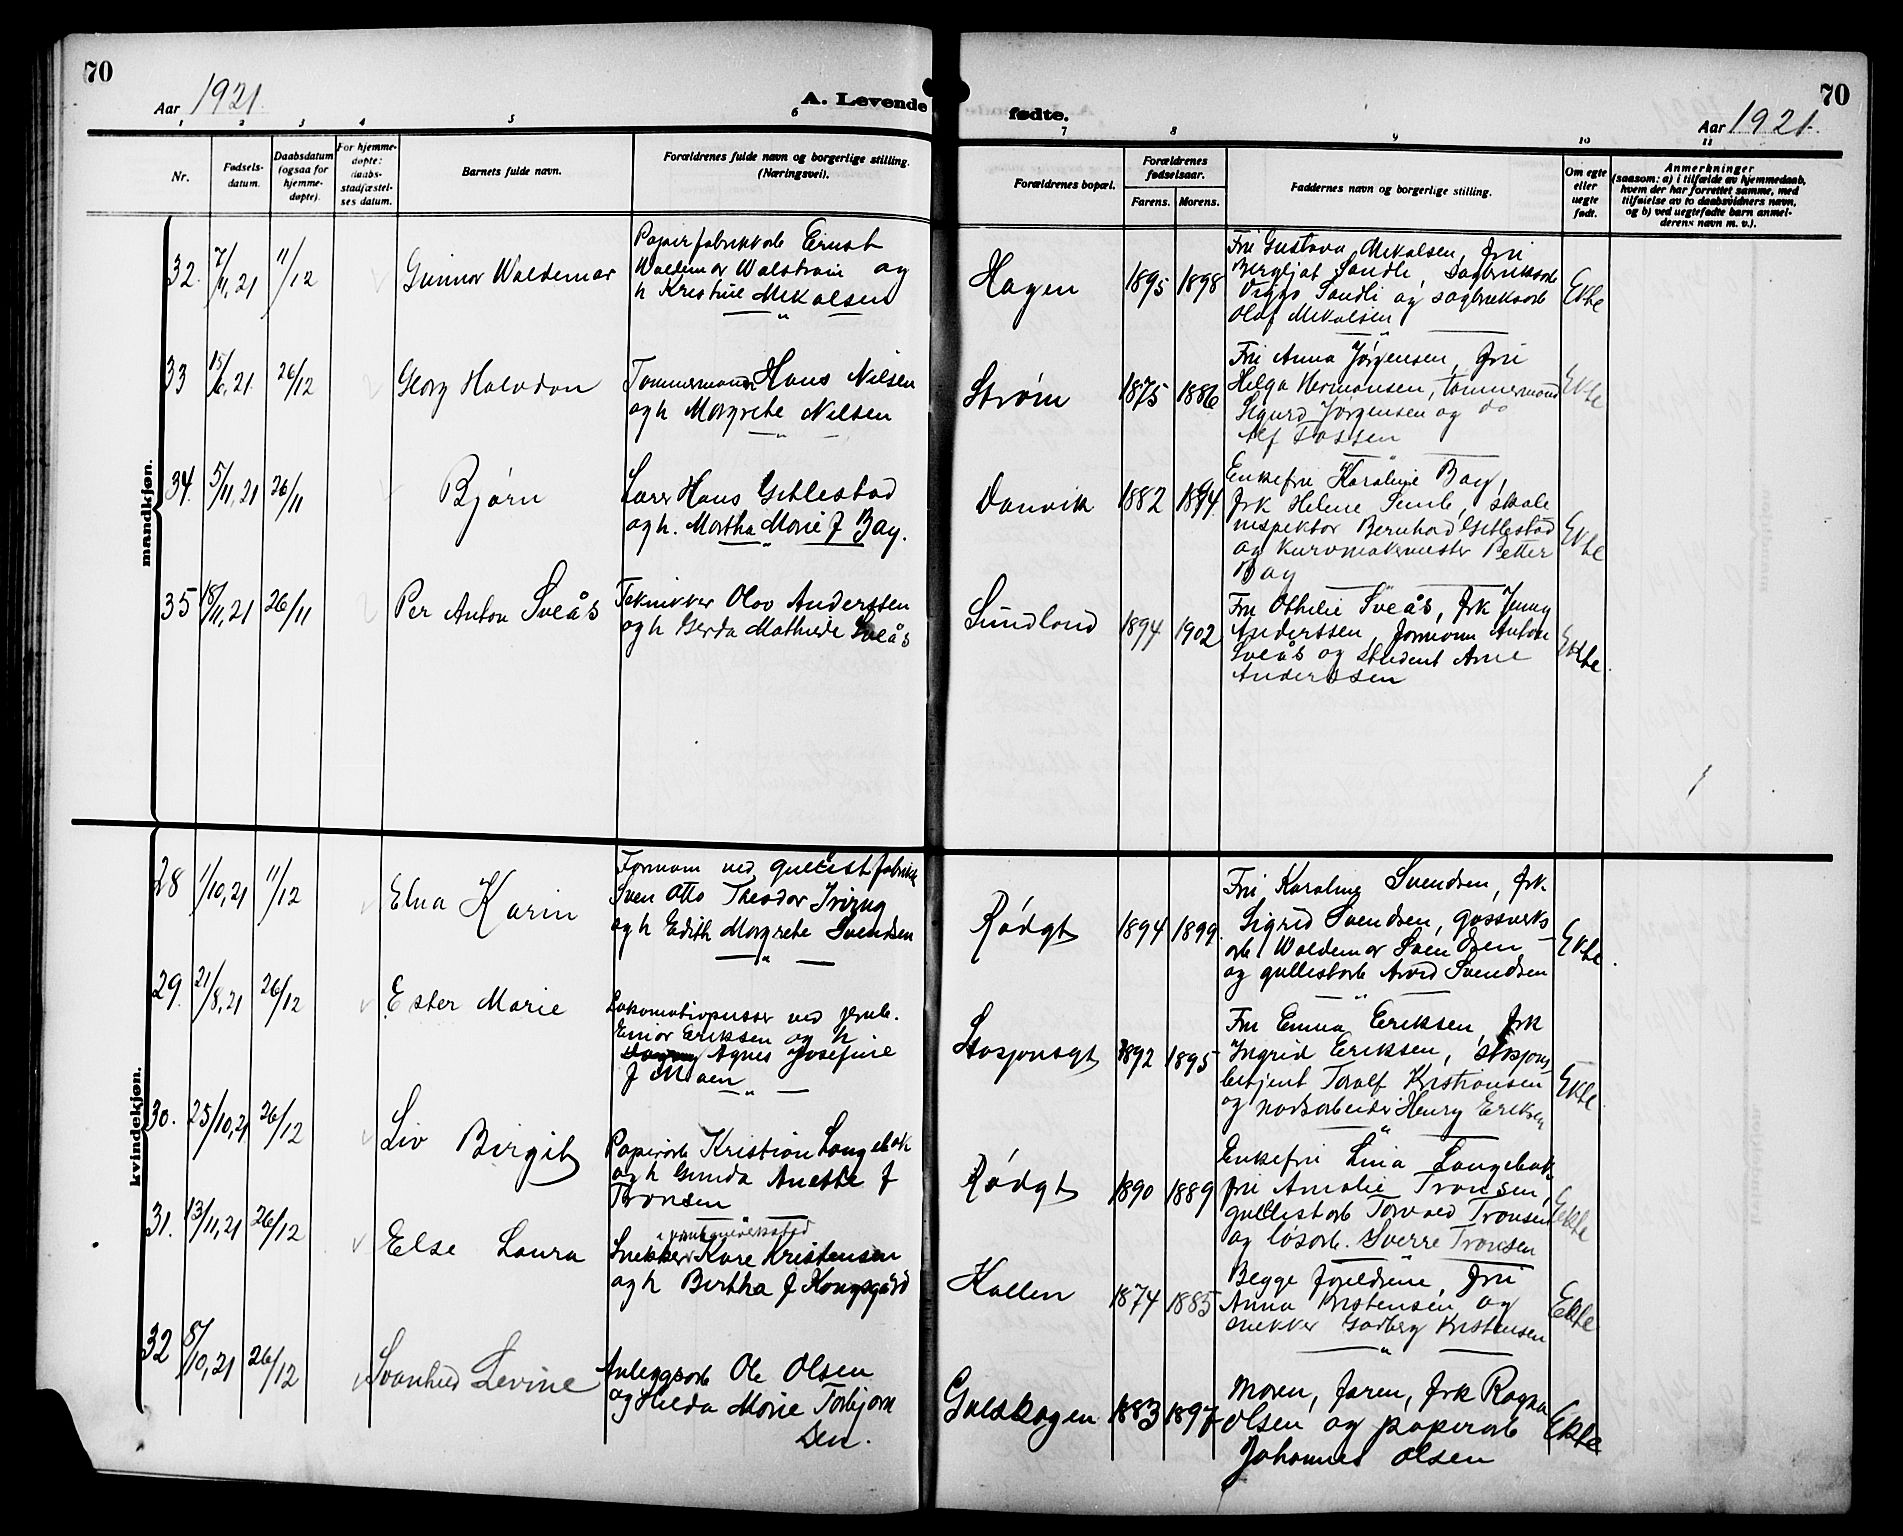 70
Aar 1921.
A. Levende
1 2 3 4 5 6
Nr.
Fødsels-
datum.
Daabsdatum
(ogsaa for
hjemme-
døpte).
For hjemme-
døpte:
daabs-
stadfæstel-
ses datum.
Barnets fulde navn.
Forældrenes fulde navn og borgerlige stilling.
(Næringsvei).
mandkjøn.
32. 7/11, 21 11/12 Gunnar Waldemar
Papirfabrikkarb Ernst
Waldemar Walstrøm og
h Kristine Mekalsen
33 15/6, 21. 26/12 Georg Halvdan
Tømmermand Hans Nilsen
og h Margrethe Nilsen
34. 5/11, 21 26/11 Bjørn
Lærer Hans Gitlestad
og h. Martha Marie f Bay.
35 18/11, 21 26/11 Per Anton Sveås
Tekniker Olav Anderssen
og h Gerda Mathilde Sveås
kvindekjøn.
28 1/10, 21 11/12 Elna Karin
Formann ved gullistfabrikk
Sven Otto Theodor
og h Edith Margrethe Svendsen
29. 21/8, 21 26/12 Ester Marie
Lokomotivpusser ved jernb.
Einar Eriksen og h
Agnes Josefine
f Moen
30. 25/10, 21 26/12 Liv Birgit
Papirarb Kristian Langebak
og h Gunda Anette f
Tronsen
31. 13/11, 21 26/12 Else Laura
Snekker Kare Kristensen
og h Birtha f Kongsgård
32 8/10, 21 26/12 Svanhild Levine
Anleggsarb Ole Olsen
og Hilda Marie Torbjørn
sen.
70
fødte.
Aar 1921.
7 8 9 10 11
Forældrenes bopæl.
Forældrenes
fødselsaar.
Farens. Morens.
Faddernes navn og borgerlige stilling.
Om egte
eller
uegte
født.
Anmerkninger
(saasom: a) i tilfælde av hjemmedaab,
hvem der har forrettet samme, med
tilføielse av to daabsvidners navn,
og b) ved uegtefødte barn anmel-
derens navn m. v.).
Hagen 1895 1898
Fru Gustava Mekalsen, fru
Bergljot Sandli, sagbruksarb
Viggo Sandli og sagbruksarb
Olaf Mekalsen
Ekte
Strøm 1875 1886
Fru Anna Jørgensen, fru
Helga Hermansen, tømmermand
Sigurd Jørgensen og do
Alf Fossen
Ekte
Danvik 1882 1894.
Enkefru Karoline Bay,
frk Helene Semb, skole
inspektør Bernhard Gitlestad
og kurvmakermester Petter
Bay
Ekte
Sundland 1894 1902
Fru Othilie Sveås, frk Jenny
Anderssen, formann Anton
Sveås og student Arne
Anderssen
Ekte.
Rødgt 1894 1899.
Fru Karoline Svendsen, frk
Sigrid Svendsen, gassverks
arb Waldemar Svendsen
og gullistarb Arvid Svendsen
Ekte.
Stasjonsgt 1892 1895
Fru Emma Eriksen, frk
Ingrid Eriksen, stasjons
betjent Toralf Kristiansen
og Henry Eriksen
Ekte.
Rødgt 1890 1889
Enkefru Lina Langebak
fru Amalie Tronsen,
gullistarb Torvald Tronsen
og løsarb. Sverre Tronsen
Ekte
Hallen 1874 1885
Begge foreldrene, fru
Anna Kristensen og
snekker Godberg Kristensen
Ekte
Gulskogen 1883 1897
Moren, faren, frk Ragna
Olsen og papirarb
Johannes Olsen
Ekte